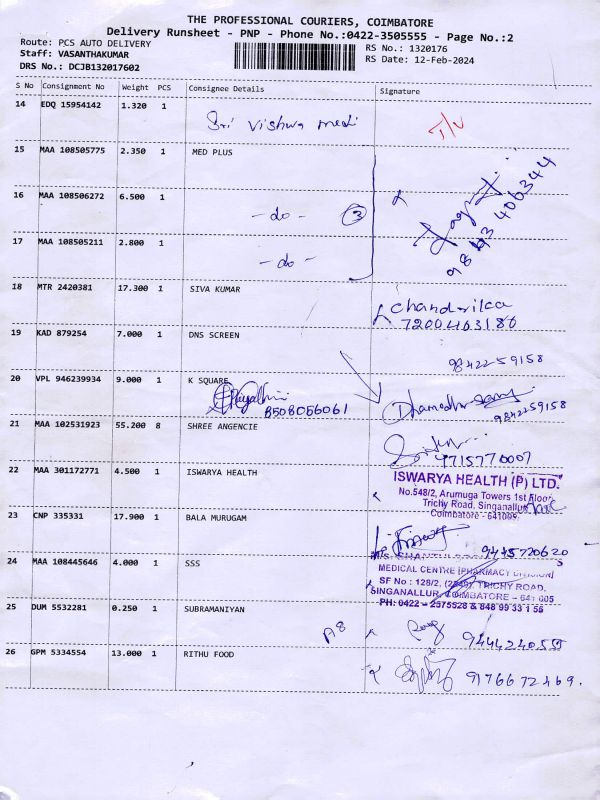 THE PROFESSIONAL COURIERS, COIMBATORE
Delivery Runsheet - PNP - Phone No.:0422-3505555 - Page No.:2
Route: PCS AUTO DELIVERY
Staff: VASANTHAKUMAR
DRS No.: DCJB132017602
RS No.: 1320176
RS Date: 12-Feb-2024
S No Consignment No Weight PCS Consignee Details Signature
14 EDQ 15954142 1.320 1 Sri Vishwa medi
15 MAA 108505775 2.350 1 MED PLUS
16 MAA 108506272 6.500 1 - do - 3
9843406344
17 MAA 108505211 2.800 1 - do -
18 MTR 2420381 17.300 1 SIVA KUMAR Chandrika
7200463180
19 KAD 879254 7.000 1 DNS SCREEN 9842259158
20 VPL 946239934 9.000 1 K SQUARE
8508056061 9842259158
21 MAA 102531923 55.200 8 SHREE ANGENCIE
9715770007
22 MAA 301172771 4.500 1 ISWARYA HEALTH ISWARYA HEALTH (P) LTD.
No.548/2, Arumuga Towers 1st Floor,
Trichy Road, Singanallur,
Coimbatore - 641005.
23 CNP 335331 17.900 1 BALA MURUGAM
9445720620
24 MAA 108445646 4.000 1 SSS
MEDICAL CENTRE (PHARMACY DIVISION)
SF No : 128/2, TRICHY ROAD,
SINGANALLUR, COIMBATORE - 641 005
PH: 0422 - 2575528 & 848 99 33 1 55
25 DUM 5532281 0.250 1 SUBRAMANIYAN
26 GPM 5334554 13.000 1 RITHU FOOD 9176672469.